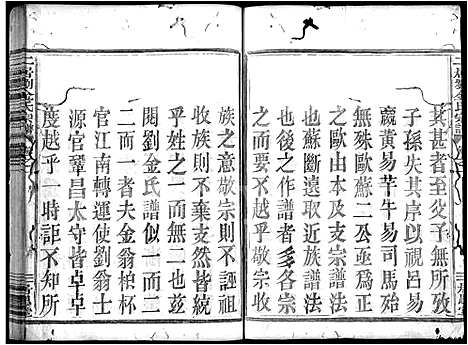 其甚者至父子無所攷
子孫失其序以呂易
嬴黃易芊牛易司馬殆
無殊二公亟爲
之歐由本及支宗譜法
也蘇斷近族譜法
也後之作譜者
之要不越乎敬宗收
族之意敬宗則不誣祖
收族則不棄支然皆統
乎姓之一而無二也玆
閱劉金氏譜似一而二
二而一者夫金翁梹杯
官江南轉運使劉翁士
源官鞏昌太守皆卓卓
度越乎一時詎不知所